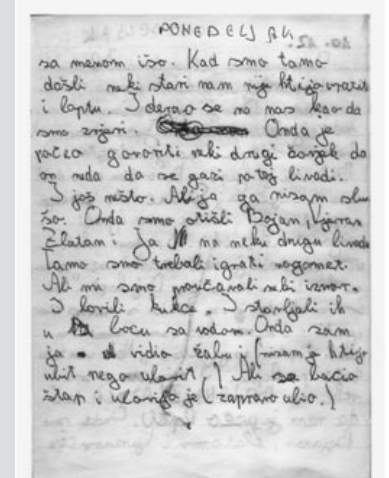 PONEDELJAK
sa menom išo. Kad smo tamo
došli neki stari nam nije htijo vratit
i loptu. I derao se na nas kao da
smo zvjeri. Onda je
počeo govoriti neki drugi čovjek da
on neda da se gazi po toj livadi.
I još nešto. Ali ja ga nisam slu
šo. Onda smo otišli Bojan, Vjeran
Zlatan i Ja na neku drugu livadu
Tamo smo trebali igrati nogomet.
Ali mi smo proučavali neki izvor.
I lovili kukce. I stavljali ih
u bocu sa vodom. Onda sam
ja vidio žabu i (nisam je htijo
ubit nego ulovit) Ali sa bacio
štap i ulovijo je (zapravo ubio.)